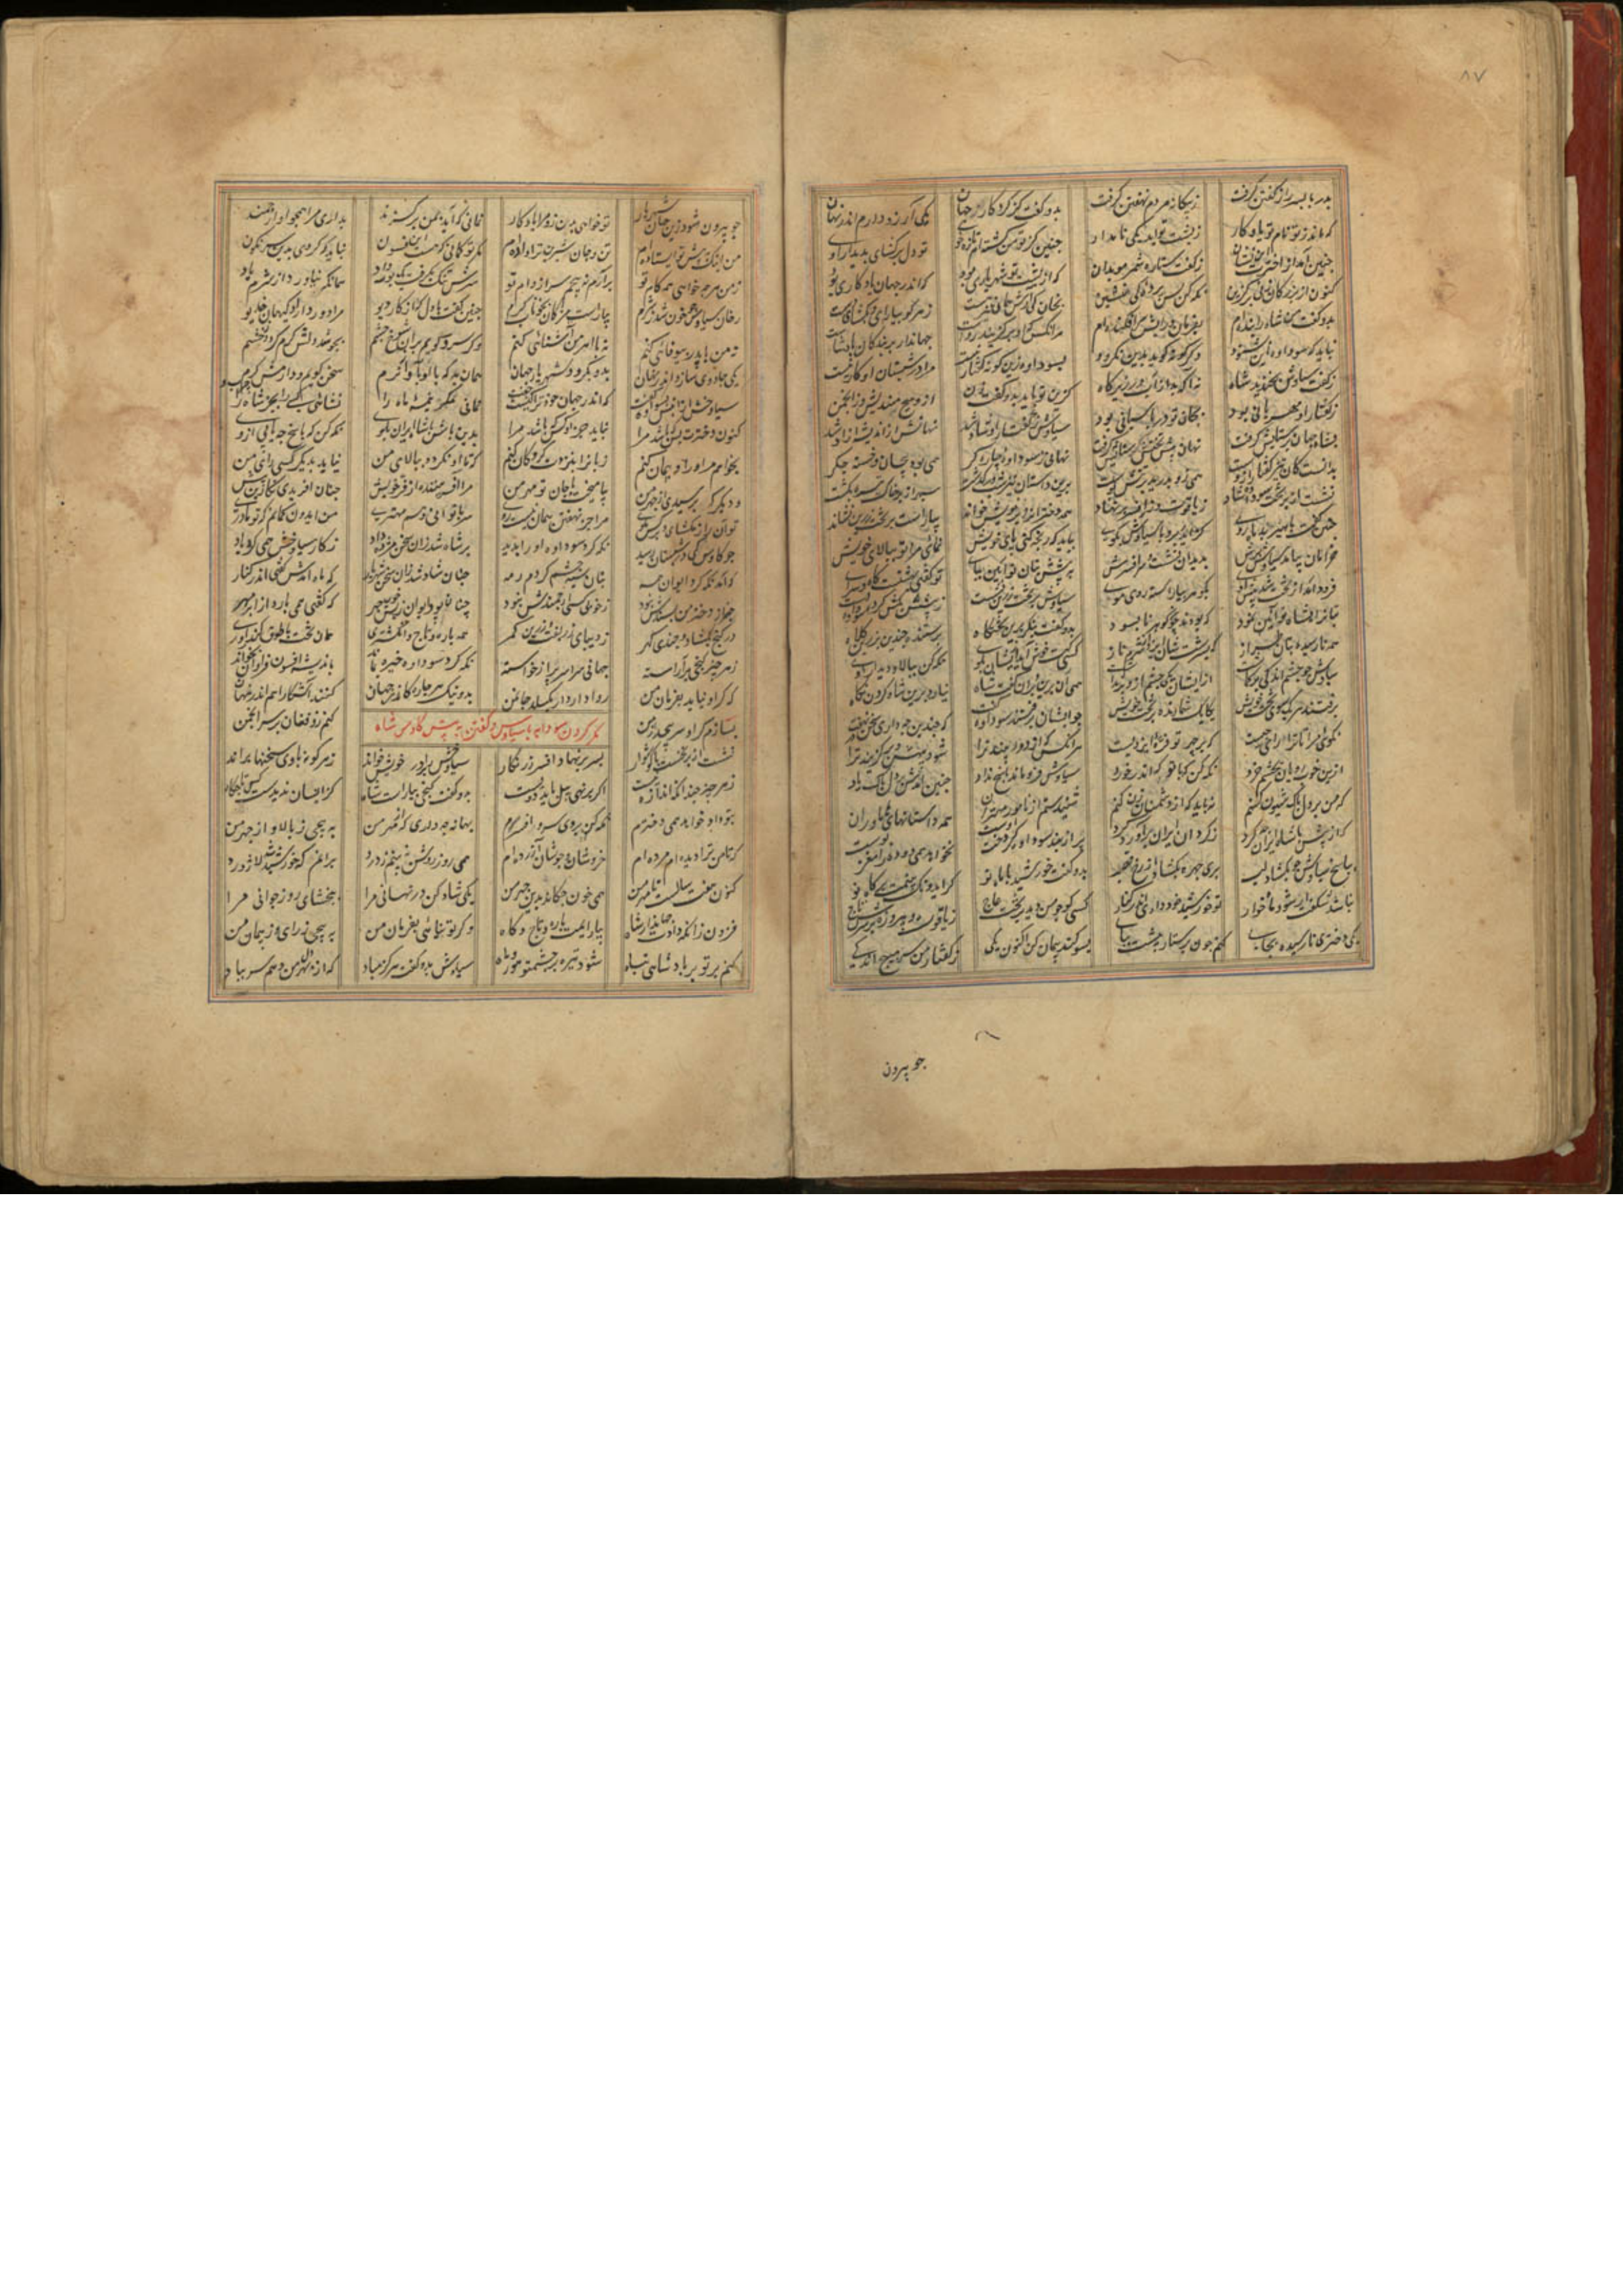 پدر با پسر راز گفتن گرفت ز بیکانه مردم نهفتن گرفت بدو گفت کز کردکار جهان یکی آرزو دارم اندر نهان
که ماند ز تو نام تو یادکار ز پشت تو آید یکی نامدار چنین کز تو من گشته‌ام تازه رو تو دل برکشای بدیدار او
چنین آمد از اخترت ز کفت ستاره شمر موبدان که از پشت تو شهریاری بود که اندر جهان یادکاری بود
کنون از بزرکان زنی برگزین نکه کن پس پرده کی پشین بخان کی آرش همان نیز هست ز هر سو بیارای و بکشای دست
بدو کفت من شاه را بنده‌ام بفرمان و رایش سرافکنده‌ام هرانکس که او برگزیند رواست جهاندار بر بندکان پادشاست
نباید که سوداوه این بشنود دکرکونه کوید بدین نکرود بسوداوه زین کونه گفتار نیست مرا در شبستان او کار نیست
ز کفت سیاوش بخندید شاه نه آکه بد از آب در زیر کاه کزین تو باید بدو کفت زن ازو هیچ مندیش وز انجمن
ز کفتار او مهربانی بود بجان تو بر پاسبانی بود سیاوش ز گفتار او شاد شد نهانش از اندیشه آزاد شد
بشاه جهان بر ستایش گرفت نهان پیش تختش نیایش گرفت نهانی ز سوداوه چاره کر همی بود پیچان و خسته جکر
بدانست کان نیز گفتار اوست همی زو بدرید بر تنش پوست برین داستان نیز شب برکذشت سپهر از بر خاک تیره بکشت
نشست از بر تخت سوداوه شاد ز یاقوت و زر افسری برنهاد همه دختران را بر خویش خواند بیاراست بر تخت زرین نشاند
چنین گفت با هیربد ماه روی کز ایدر برو با سیاوش بکوی بباید که رنجه کنی پای خویش نمائی مرا سرو بالای خویش
خرامان بیامد سیاوش برش بدید آن نشست و سر و افسرش به پیشش بتان نوآیین بپای تو کفتی بهشتست کاخ و سرای
فرود آمد از تخت و شد پیش اوی بکوهر بیاراسته روی و موی سیاوش بر تخت زرین نشست ز پیشش بکش کرد سوداوه دست
بتان را بشاه نوآیین نمود که بودند چون کوهر نابسود بدو کفت بنکر برین تختکاه پرستنده چندین بزرین کلاه
همه نارسیده بتان طراز که بسرشت شان ایزد از شرم و ناز کسی کت خوش آید ازیشان بکوی نکه کن ببالا و دیدار اوی
سیاوش چو چشم اندکی برکماشت ازایشان یکی چشم ازو برنداشت
برفتند هر یک سوی تخت خویش یکایک شمارنده بر بخت خویش چو ایشان برفتند سوداوه گفت که چندین چه داری سخن در نهفت
هرانکس که از دور بیند ترا شود بیهش و برگزیند ترا
ازین خوبرویان بچشم خرد نکه کن که با تو که اندر خورد سیاوش فرو ماند و پاسخ نداد چنین آمدش بر دل پاک یاد
که من بر دل پاک شیون کنم به آید که از دشمنان زن کنم شنیدستم از نامور مهتران همه داستانهای هاماوران
که از پیش با شاه ایران چه کرد ز کردان ایران برآورد کرد پر از بند سوداوه کو دخت اوست نخواهد همی دوده را مغز و پوست
بپاسخ سیاوش چو بکشاد لب پری چهره بکشاد از رخ قصب بدو گفت خورشید با ماه نو کر ایدونکه بینند بر کاه نو
نباشد شکفت ار شود ماه خوار تو خورشید خود داری اندر کنار کسی کو چو من دید بر تخت عاج ز یاقوت و پیروزه بر سرش تاج
یکی دختری نارسیده بجای کنم چون پرستار پیشت بپای بسوکند پیمان کن اکنون یکی ز کفتار من سر مپیچ اندکی
چو بیرون
چو بیرون شود زین جهان شهریار تو خواهی بدن زو مرا یادکار نمانی که آید بمن بر کزند بداری مرا همچو او ارجمند
من اینک به پیش تو ایستاده‌ام تن و جان شیرین ترا داده‌ام
ز من هر چه خواهی همه کام تو برآرم نپیچم سر از دام تو سرش تنک بکرفت و یک بوسه داد همانکه نیاورد از شرم یاد
رخان سیاوش چو خون شد ز شرم بیاراست مژکان بخوناب کرم چنین گفت با دل که از کار دیو مرا دور داراد کیهان خدیو
نه من با پدر بیوفائی کنم نه با اهرمن آشنائی کنم وکر سرد کویم بدین شوخ چشم بجوشد دلش کرم کردد ز خشم
یکی جادوی سازد اندر نهان بدو بکرود شهریار جهان همان به که با او بآواز نرم سخن کویم و دارمش کرم
سیاوخش ازان پس بسوداوه گفت که اندر جهان خود ترا کیست جفت نمانی مکر نیمه ماه را نشائی کسی را بجز شاه را
کنون دخترت بس که باشد مرا نباید جز او کس که باشد مرا بدین باش و با شاه ایران بکوی نکه کن که پاسخ چه یابی ازو
بخواهم من او را و پیمان کنم زبان را بنزدت کروکان کنم که تا او نکردد ببالای من نیاید بدیکر کسی رای من
و دیکر که پرسیدی از چهر من بیامیخت با جان تو مهر من مرا آفریننده از فر خویش چنان آفریدی نکارین ز پیش
تو این راز مکشای و با کس مکوی مرا جز نهفتن همان نیست روی سر بانوانی و هم مهتری من ایدون کمانم که تو مادری
نکه کرد سوداوه او را بدید بر شاه شد زان سخن مژده داد ز کار سیاوخش همی کرد یاد
که آمد نکه کرد ایوان همه بتان سیه چشم کردم رمه چنان بود ایوان ز بس خوب چهر که کفتی همی بارد از ابر مهر
در کنج بکشاد و چندی کهر ز دیبای زربفت و زرین کمر همه یاره و تاج و انکشتری همان تخت با طوق کنداوری
ز هر چیز کنجی بد آراسته جهانی سراسر پر از خواسته نکه کرد سوداوه خیره بماند باندیشه افسون فراوان بخواند
که کر او نیاید بفرمان من روا دارم ار بکسلد جان من بد و نیک هر چاره کاندر جهان کنند آشکارا و هم در نهان
بسازم کر او سر بپیچد ز من کنم زو فغان بر سر انجمن
مکر کردن سودابه با سیاوس و گفتن به پیش کاوس شاه
نشست از بر تخت با کوشوار بسر بر نهاد افسر زر نکار سیاوخش را در بر خویش خواند ز هر کونه با وی سخنها براند
بدو گفت کنجی بیاراست شاه کز انسان ندیدست کس تاج و کاه
ز هر چیز چندانکه اندازه نیست اکر بر نهی پیل باید دویست
بتو داد خواهد همی دخترم نکه کن بروی و سر و افسرم بهانه چه داری که از مهر من به پیچی ز بالا و از چهر من
که تا من ترا دیده‌ام مرده‌ام خروشان و جوشان و آزرده‌ام همی روز روشن نه بینم ز درد برانم که خورشید شد لاژورد
کنون هفت سالست تا مهر من همی خون چکاند بدین چهر من یکی شاد کن در نهانی مرا ببخشای روز جوانی مرا
فزون زانکه دادت جهاندار شاه بیارایمت یاره و تاج و کاه وکر تو نیائی بفرمان من به پیچی ز رای و ز پیمان من
کنم بر تو بر پادشاهی تباه شود تیره بر چشم تو هور و ماه سیاوش بدو گفت هرکز مباد که از بهر دل من دهم سر بباد